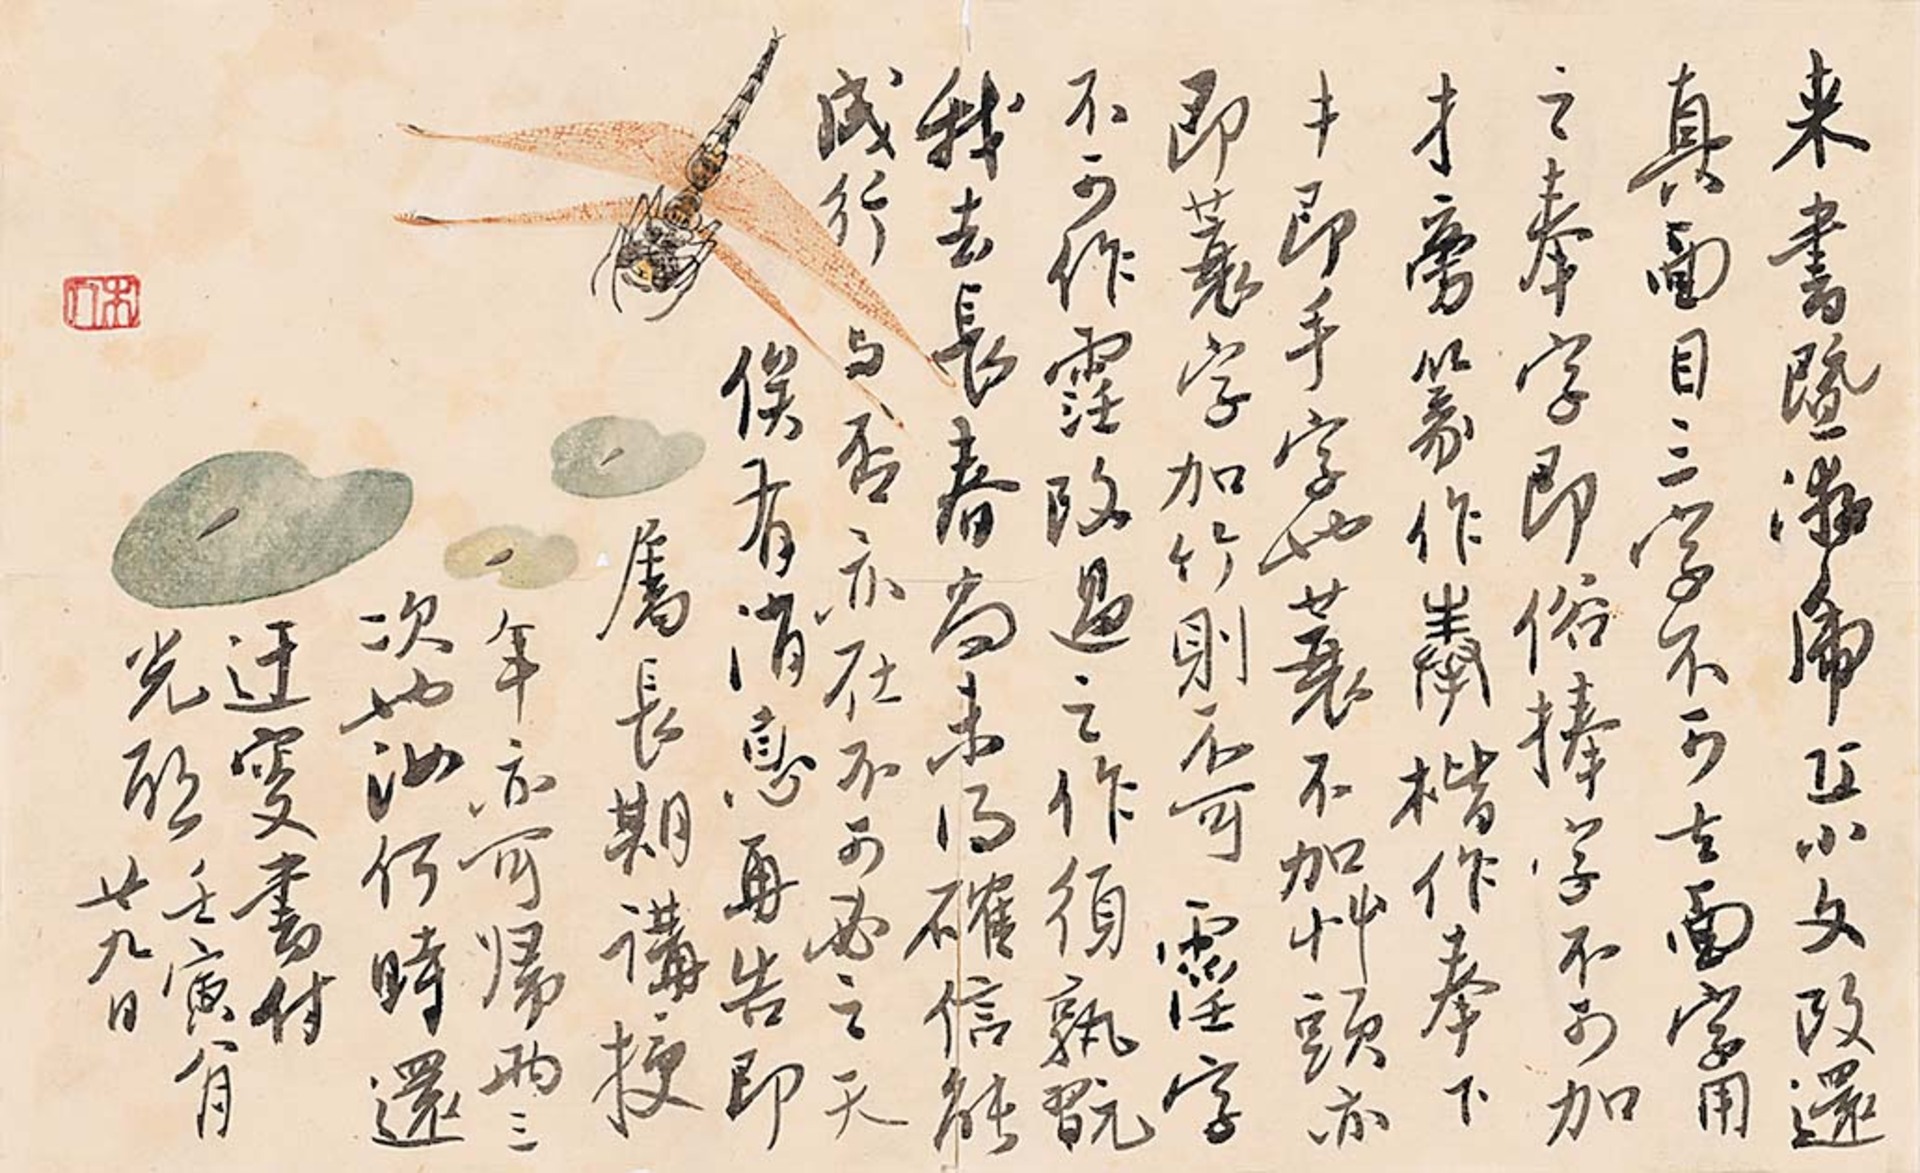 来書暨瀞廎正小文改還
真面目三字不可去面字用
之奉字即俗捧字不可加
才旁篆作奉楷作奉下
丰即手字也蓑不加艸頭亦
即蓑字加竹則不可 霪字
不可作霪改過之作須孰翫
我去長春尚未得確信能
成行與否亦在不可必之天
俟有消息再告即
屬長期講授
年亦可歸兩三
次也汝何時還
迂叟書付
光啟 壬寅八月
廿九日